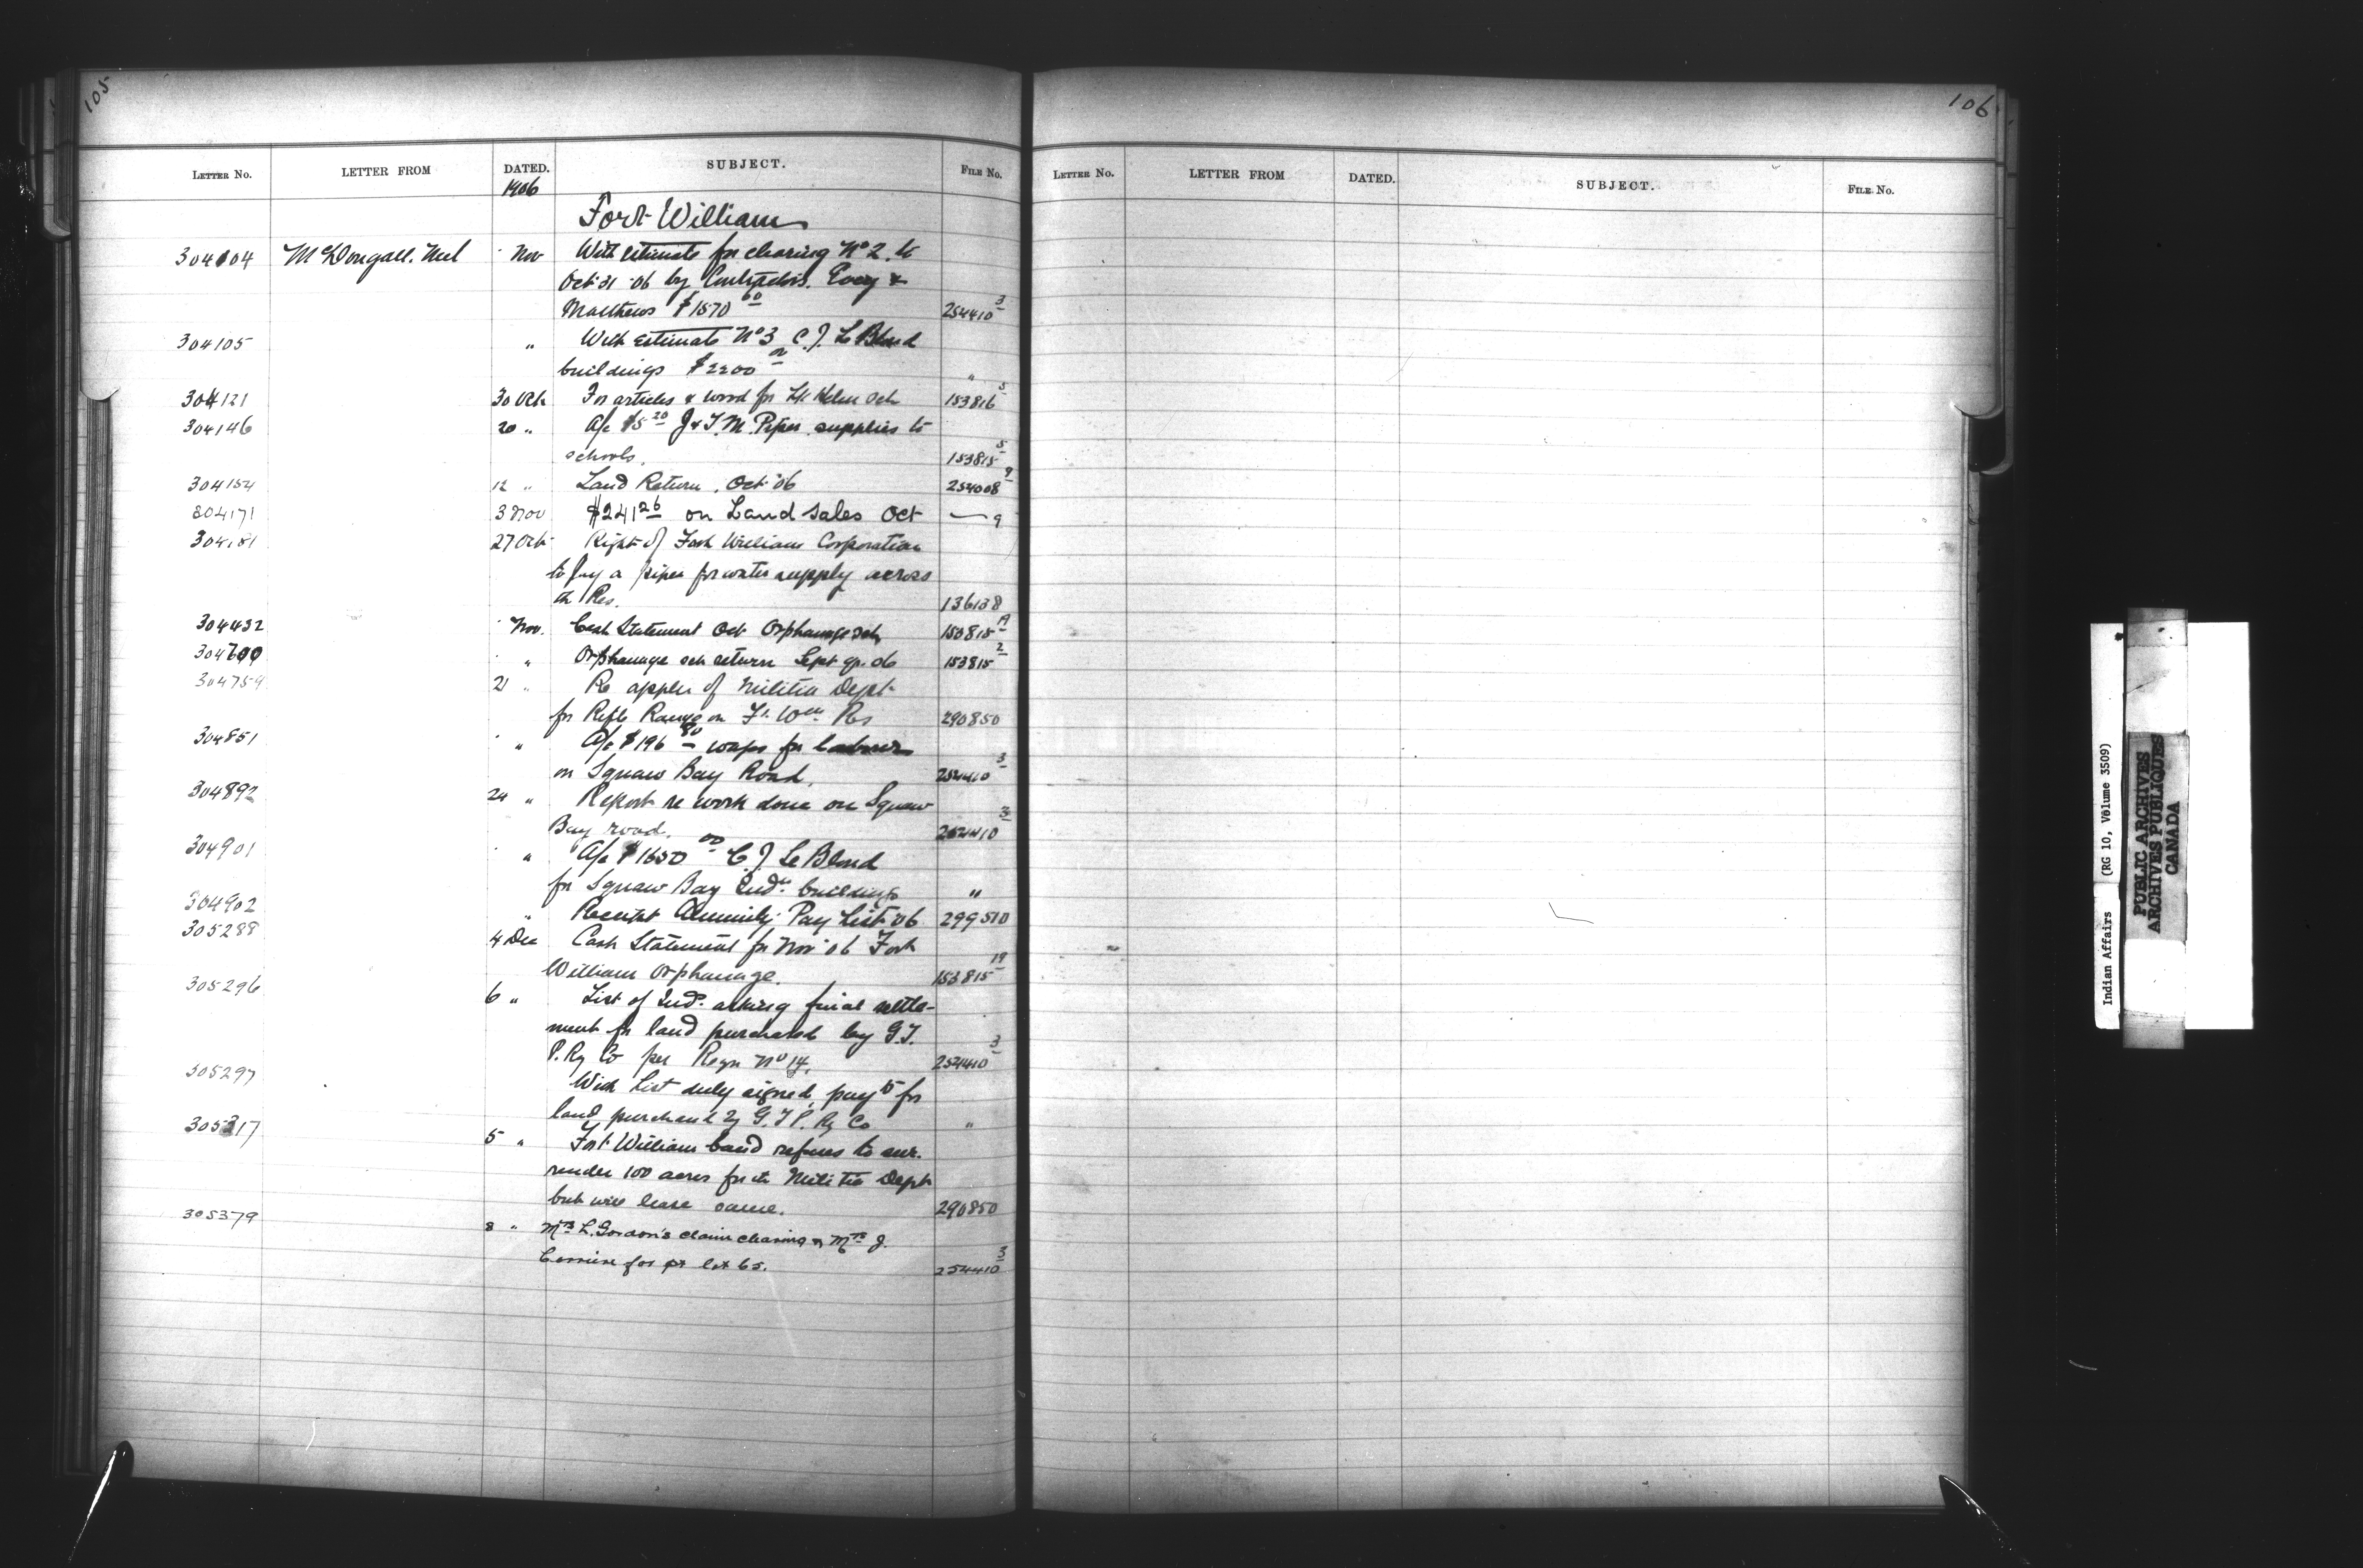 105
LETTER No. LETTER FROM DATED. SUBJECT. FILE No.
1906
Fort William
304104 McDougall. Neil Nov With estimate for clearing No 2. to
Oct 31 '06 by Contractors.
Matthews $1570 60 254410 3
304105 " With estimate No 3 C. J. Le Blond
buildings $2200 00 "
304121 30 Oct For articles & wood for sch 153816 5
304146 20 " A/c $5 20 J & T. M. Piper supplies to
schools. 153815 5
304154 12 " Land Return. Oct '06 254008 9
304171 3 Nov $241 26 on Land Sales Oct — 9
304181 27 Oct Right of Fort William Corporation
to lay a pipe for water supply across
the Res. 136138
304432 Nov. Cash Statement Oct Orphanage sch 153815 19
304700 " Orphanage sch return Sept qr. 06 153815 2
304754 21 " Re appln of Militia Dept
for Rifle Range on Ft. Wm Res 290850
304851 " A/c $196 80 wages for labourers
on Squaw Bay Road. 254410 3
304892 24 " Report re work done on Squaw
Bay road. 254410 3
304901 " A/c $1650 00 C. J. Le Blond
for Squaw Bay Indn. buildings "
304902 " Receipt Annuity Pay List '06 299510
305288 4 Dec Cash Statement for Nov '06 Fort
William Orphanage. 153815 19
305296 6 " List of Inds. asking final settle-
ment for land purchased by G. T.
P. Ry Co per Regn No 14. 254410 3
305297 With List duly signed, payts for
land purchased by G. T. P. Ry Co "
305317 5 " Fort William band refuses to sur-
render 100 acres for the Militia Dept
but will lease same. 290850
305379 8 " Mrs L. Gordon's claim clearing & Mrs J.
for pt lot 65. 254410 3
106
LETTER No. LETTER FROM DATED. SUBJECT. FILE No.
Indian Affairs (RG 10, Volume 3509)
PUBLIC ARCHIVES
ARCHIVES PUBLIQUES
CANADA